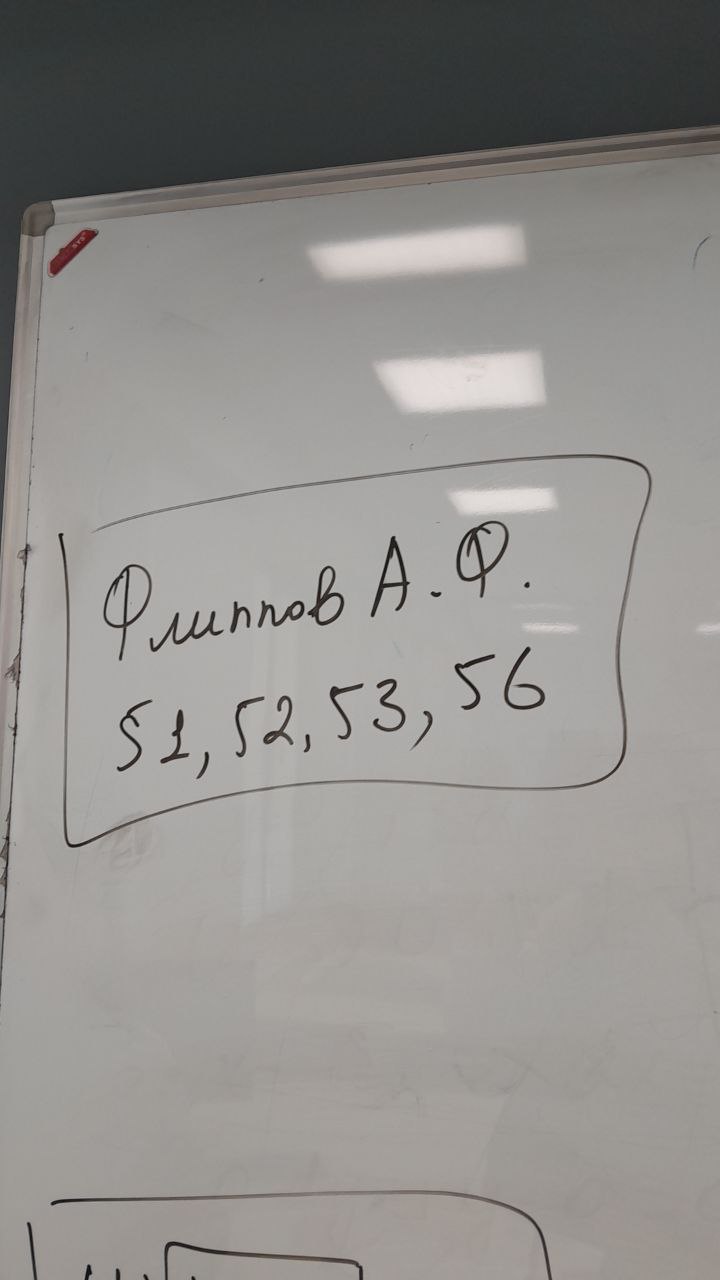 Флиппов А.Ф.
51, 52, 53, 56